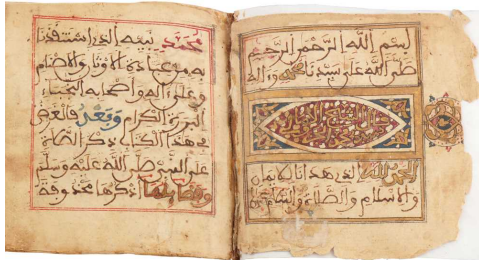 بسم الله الرحمن الرحيم
صلى الله على سيدنا محمد وءاله
الحمد لله الذي هدانا للايمان
والاسلام والصلاة والسلام على
محمد نبيه الذي استنقذنا
به من عبادة الاوثان والاصنام
وعلى اله واصحابه النجباء
البررة الكرام وبعد فالغرض
في هذا الكتاب ذكر الصلاة
على النبي صلى الله عليه وسلم
وفضائلها اذكرها محذوفة